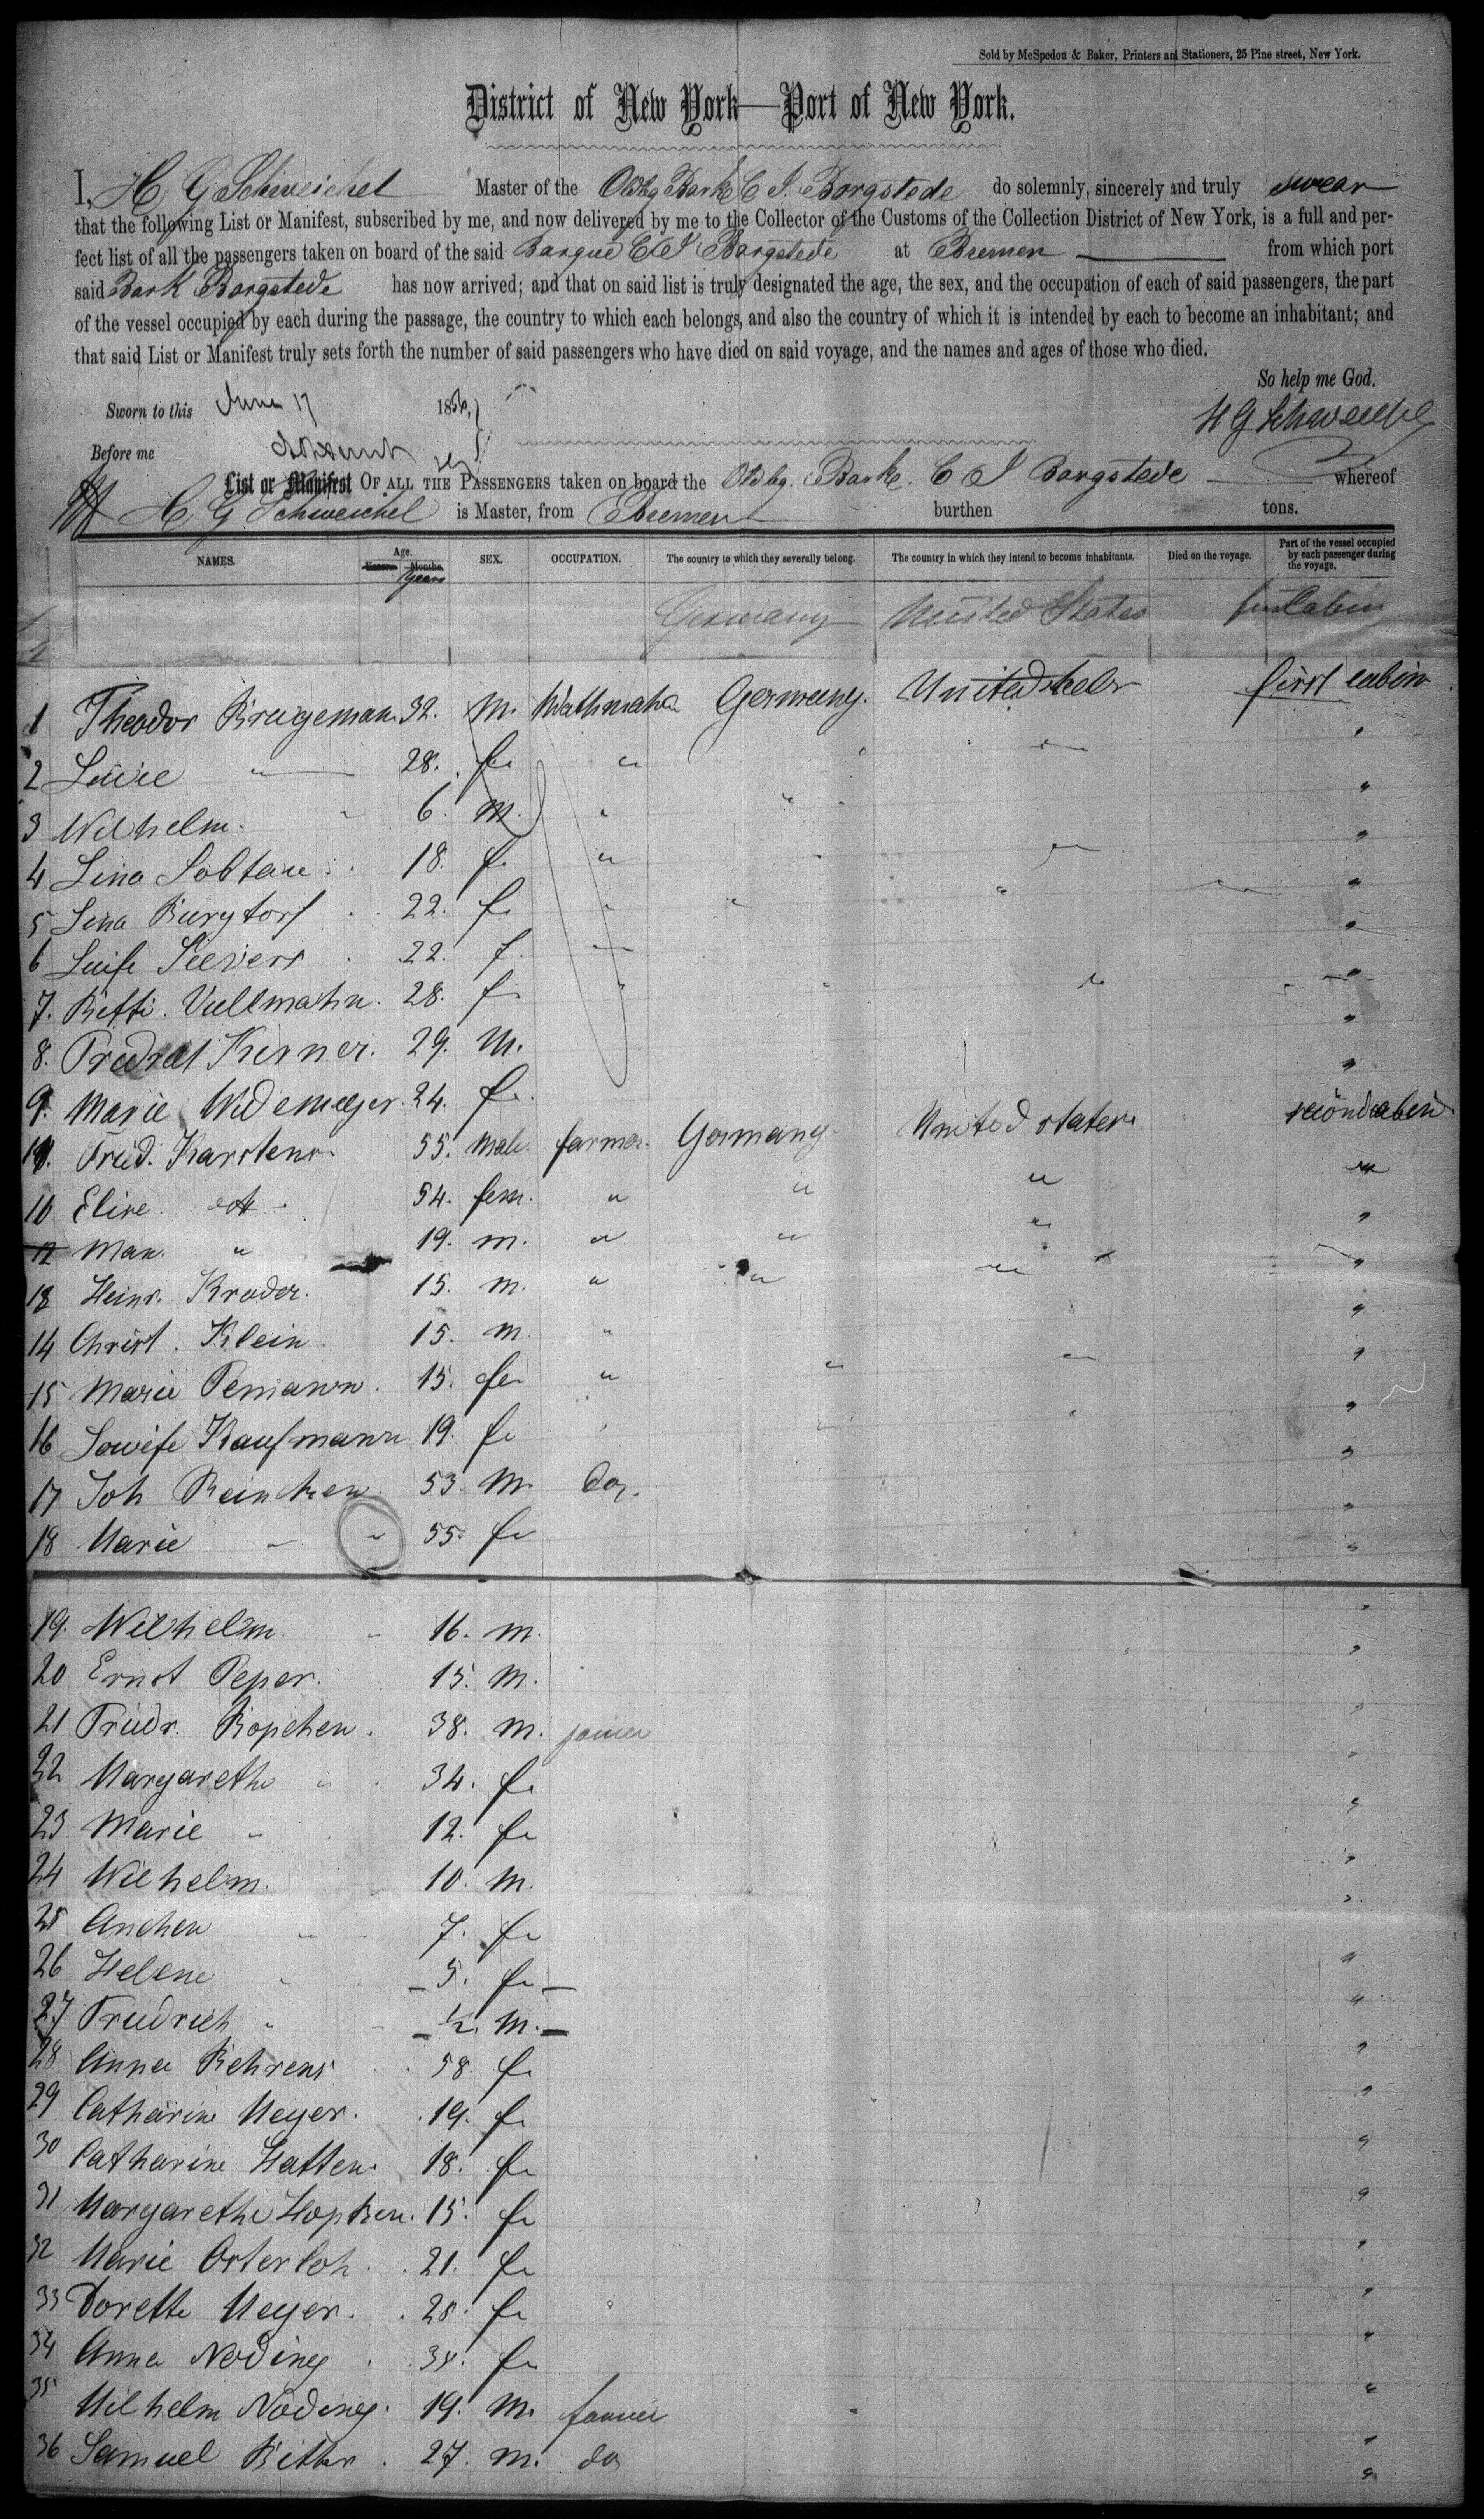 Sold by McSpedon & Baker, Printers and Stationers, 25 Pine street, New York.
District of New York—Port of New York.
I, H G Schweichel Master of the Oldbg Bark C J. Borgstede do solemnly, sincerely and truly swear
that the following List or Manifest, subscribed by me, and now delivered by me to the Collector of the Customs of the Collection District of New York, is a full and per-
fect list of all the passengers taken on board of the said Barque C J Borgstede at Bremen from which port
said Bark Borgstede has now arrived; and that on said list is truly designated the age, the sex, and the occupation of each of said passengers, the part
of the vessel occupied by each during the passage, the country to which each belongs, and also the country of which it is intended by each to become an inhabitant; and
that said List or Manifest truly sets forth the number of said passengers who have died on said voyage, and the names and ages of those who died.
So help me God.
Sworn to this June 17 1856,
H G Schweichel
Before me
List or Manifest OF ALL THE PASSENGERS taken on board the Oldbg. Barke. C J Borgstede whereof
H G Schweichel is Master, from Bremen burthen tons.
NAMES. Age. Years. Months. years SEX. OCCUPATION. The country to which they severally belong. The country in which they intend to become inhabitants. Died on the voyage. Part of the vessel occupied by each passenger during the voyage.
Germany United States Cabin
1 Theodor Brugeman 32. m. Germany. United states first cabin
2 28. fe " "
3 Wilhelm. " 6. m. " " "
4 Lina 18. fe " " "
5 Lina Burgtorf 22. f. " " " "
6 Luise Sievers 22. f. "
7. Betti. Vullmahn. 28. f. " " " "
8. Kerner. 29. m. "
9. Marie Widemeyer. 24. fe. "
Fried. Karstens. 55. male. farmer. Germany. United states. second cabin
10 Elise. do 54. fem. " " " "
12 Max. " 19. m. " " " "
13 Heinr. Kroder. 15. m. " " " "
14 Christ. Klein. 15. m. " "
15 Marie 15. fe " " " "
16 Lowise Kaufmann 19. fe "
17 Joh Reincken. 53 m. do. "
18 Marie " " 55. fe "
19. Wilhelm. " 16. m. "
20 Ernst Peper. 15. m. "
21 Friedr. Kopchen. 38. m. joiner "
22 Margarethe " 34. fe "
23 Marie " 12. fe "
24 Wilhelm. 10. m. "
25 Anchen " 7. fe "
26 Helene " 5. fe "
27 Friedrich " ½. m. "
28 Anna Behrens 58. fe "
29 Catharine Meyer. 19. fe "
30 Catharine Hatten 18. fe "
31 Margarethe Hopken. 15. fe "
32 Marie Osterloh. 21. fe "
33 Dorette Meyer. 28. fe "
34 Anna Noding 34. fe "
35 Wilhelm Noding. 19. m. farmer "
36 Samuel Ritter. 27. m. do "